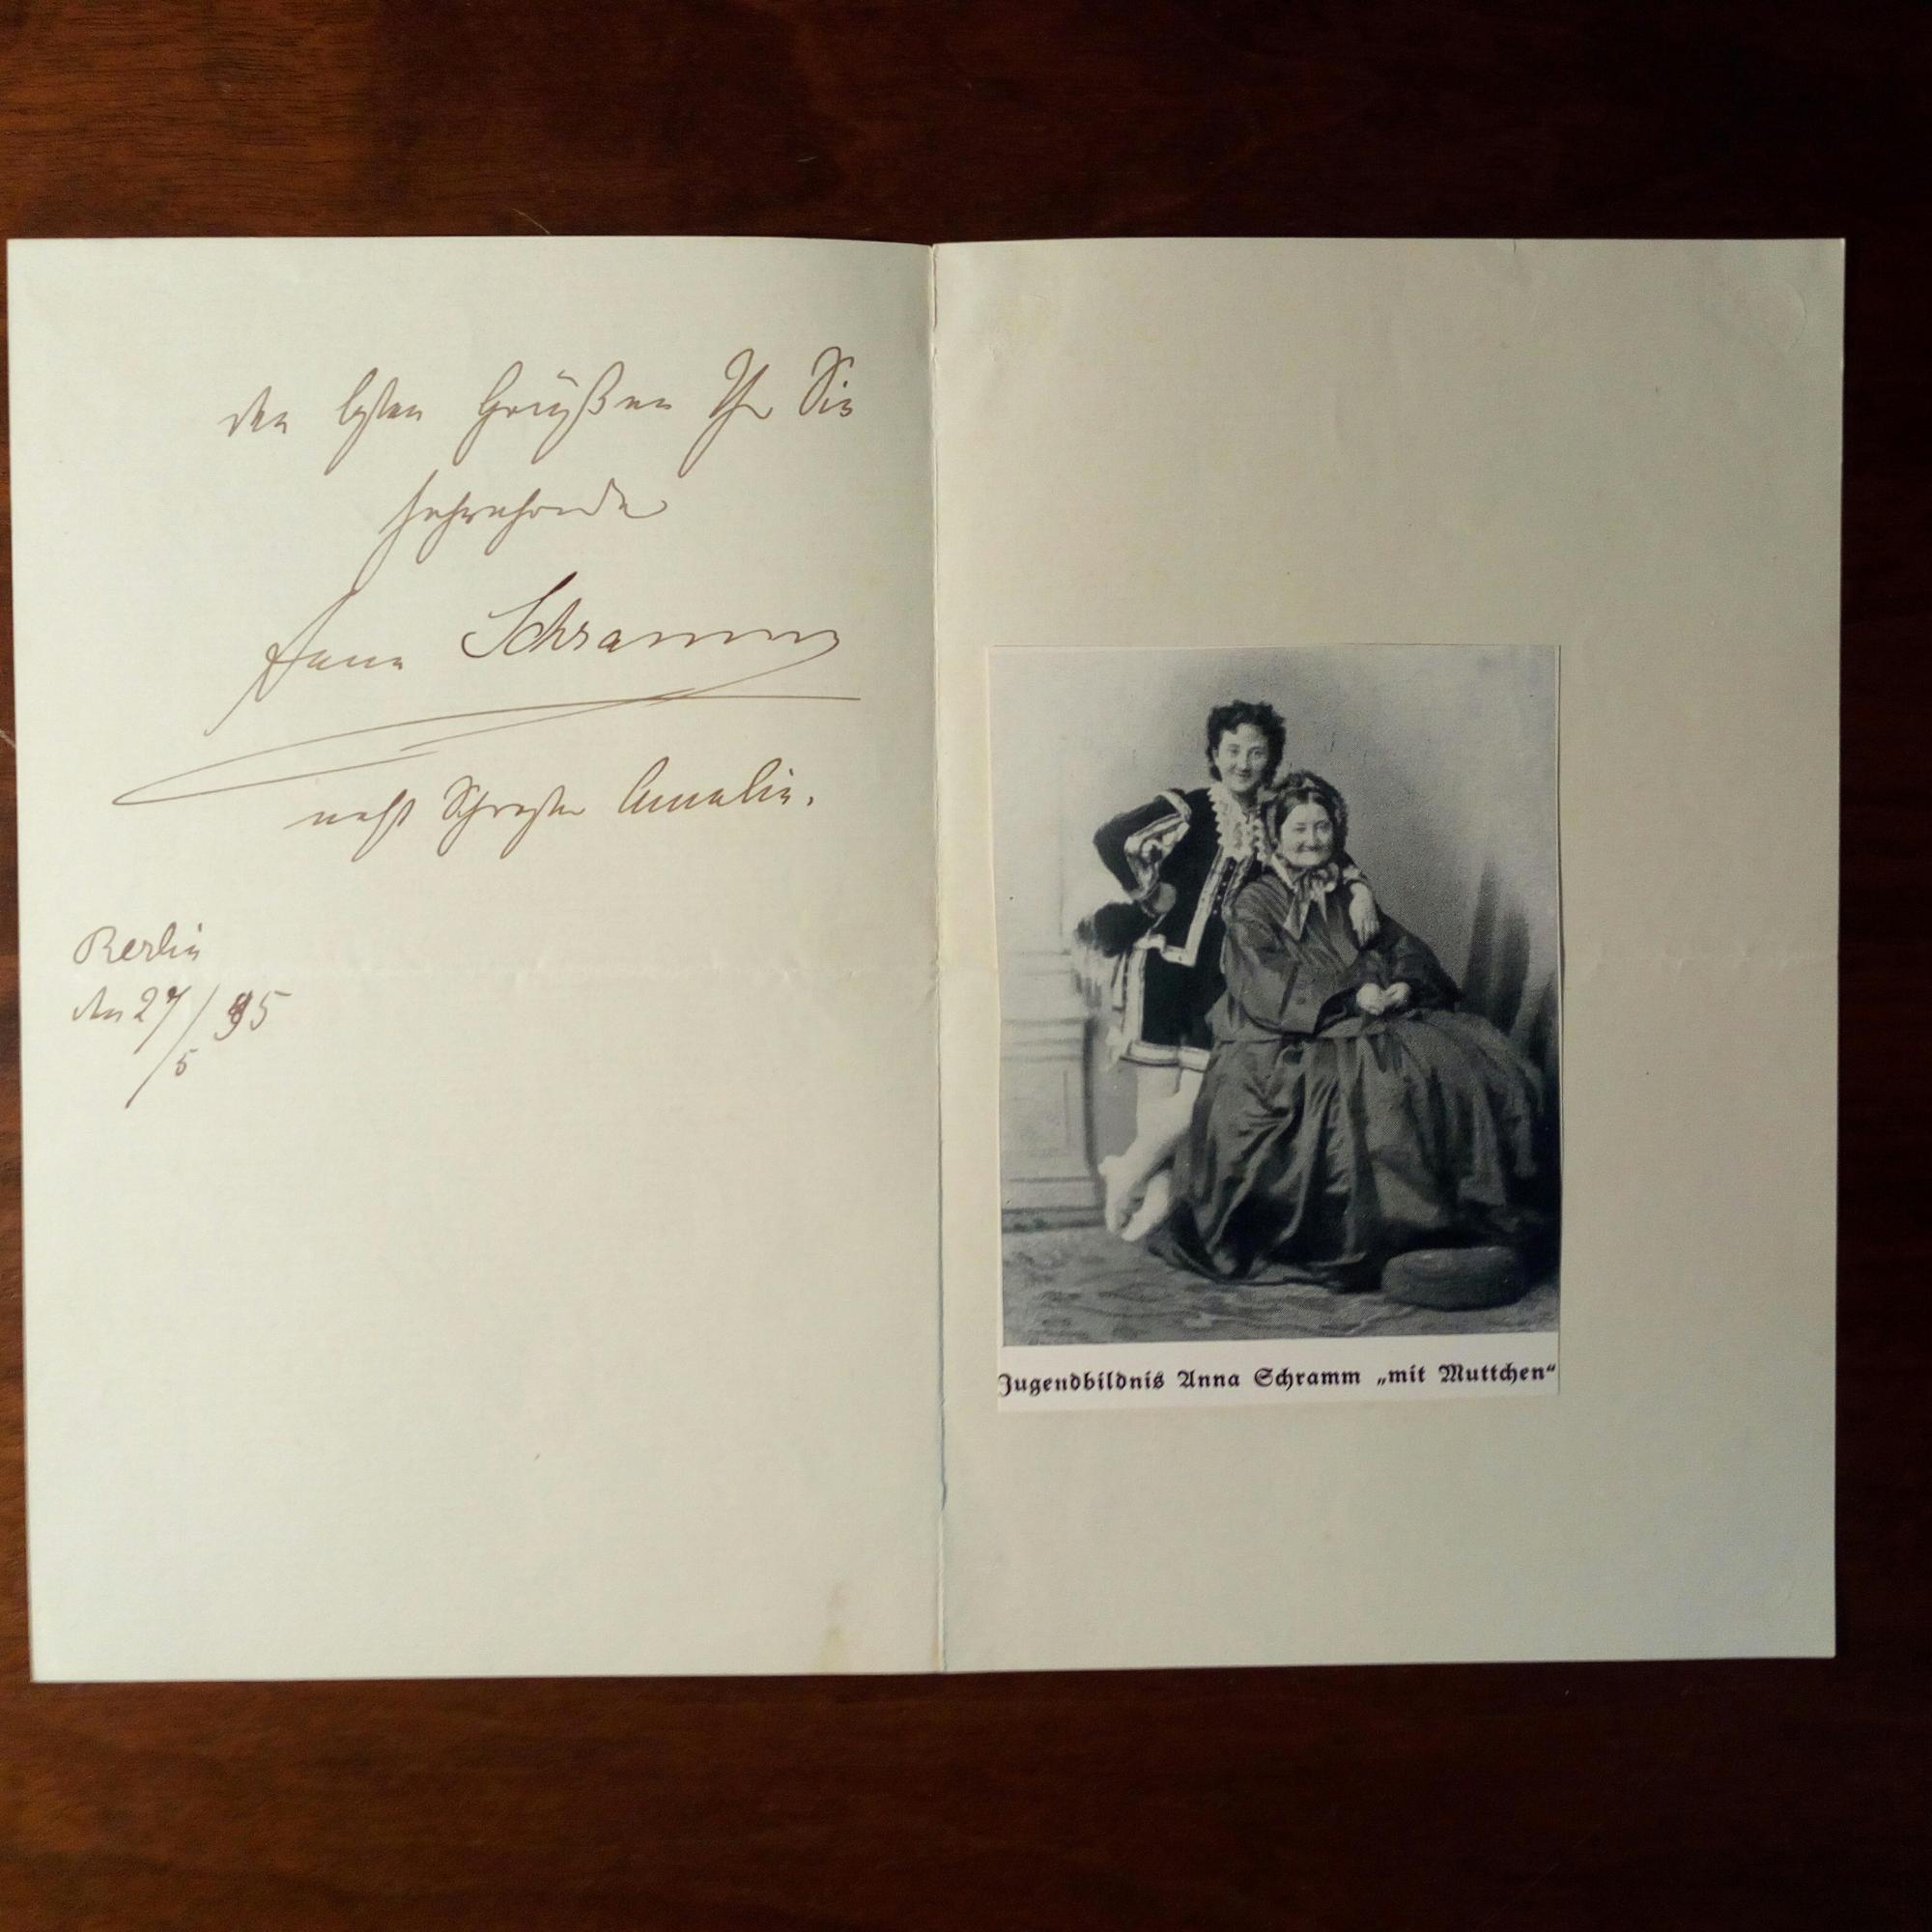 den besten Grüßen Ihr Sie
hochverehrende
Anna Schramm
nebst Schwester Amalie.
Berlin
den 27/5 95
Jugendbildnis Anna Schramm „mit Muttchen“